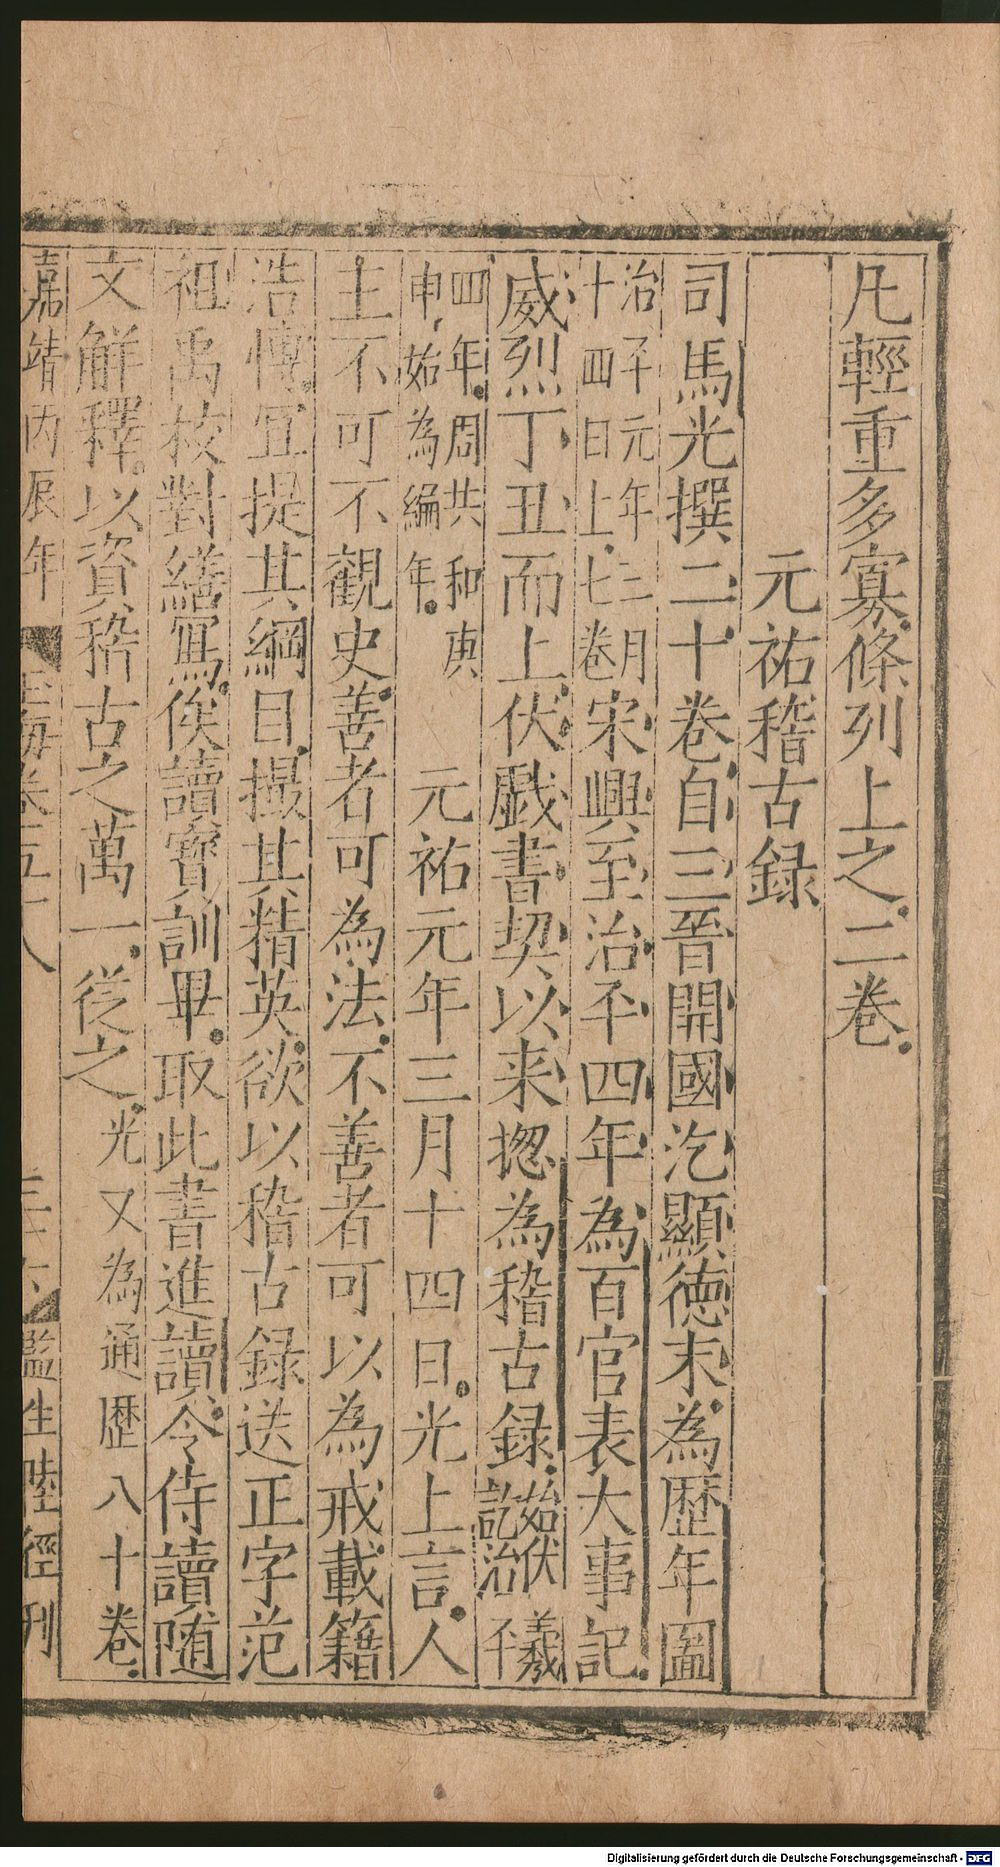 凡輕重多寡條列上之二巻
元祐稽古録
司馬光撰二十巻自三晉開國汔顯德末為歴年圖
治平元年二月
十四日上七巻
宋興至治平四年為百官表大事記
威烈丁丑而上伏戯書契以来揔為稽古録
始伏羲
訖治平
四年周共和庚
申始為編年
元祐元年三月十四日光上言人
主不可不觀史善者可為法不善者可以為戒載籍
浩愽宜提其綱目撮其精英欲以稽古録送正字范
祖禹校對繕寫俟讀寳訓畢取此書進讀令侍讀随
文解釋以資稽古之萬一從之光又為通歴八十巻
嘉靖丙辰年
玉海卷五十八
監生陸徑刊
Digitalisierung gefördert durch die Deutsche Forschungsgemeinschaft - DFG